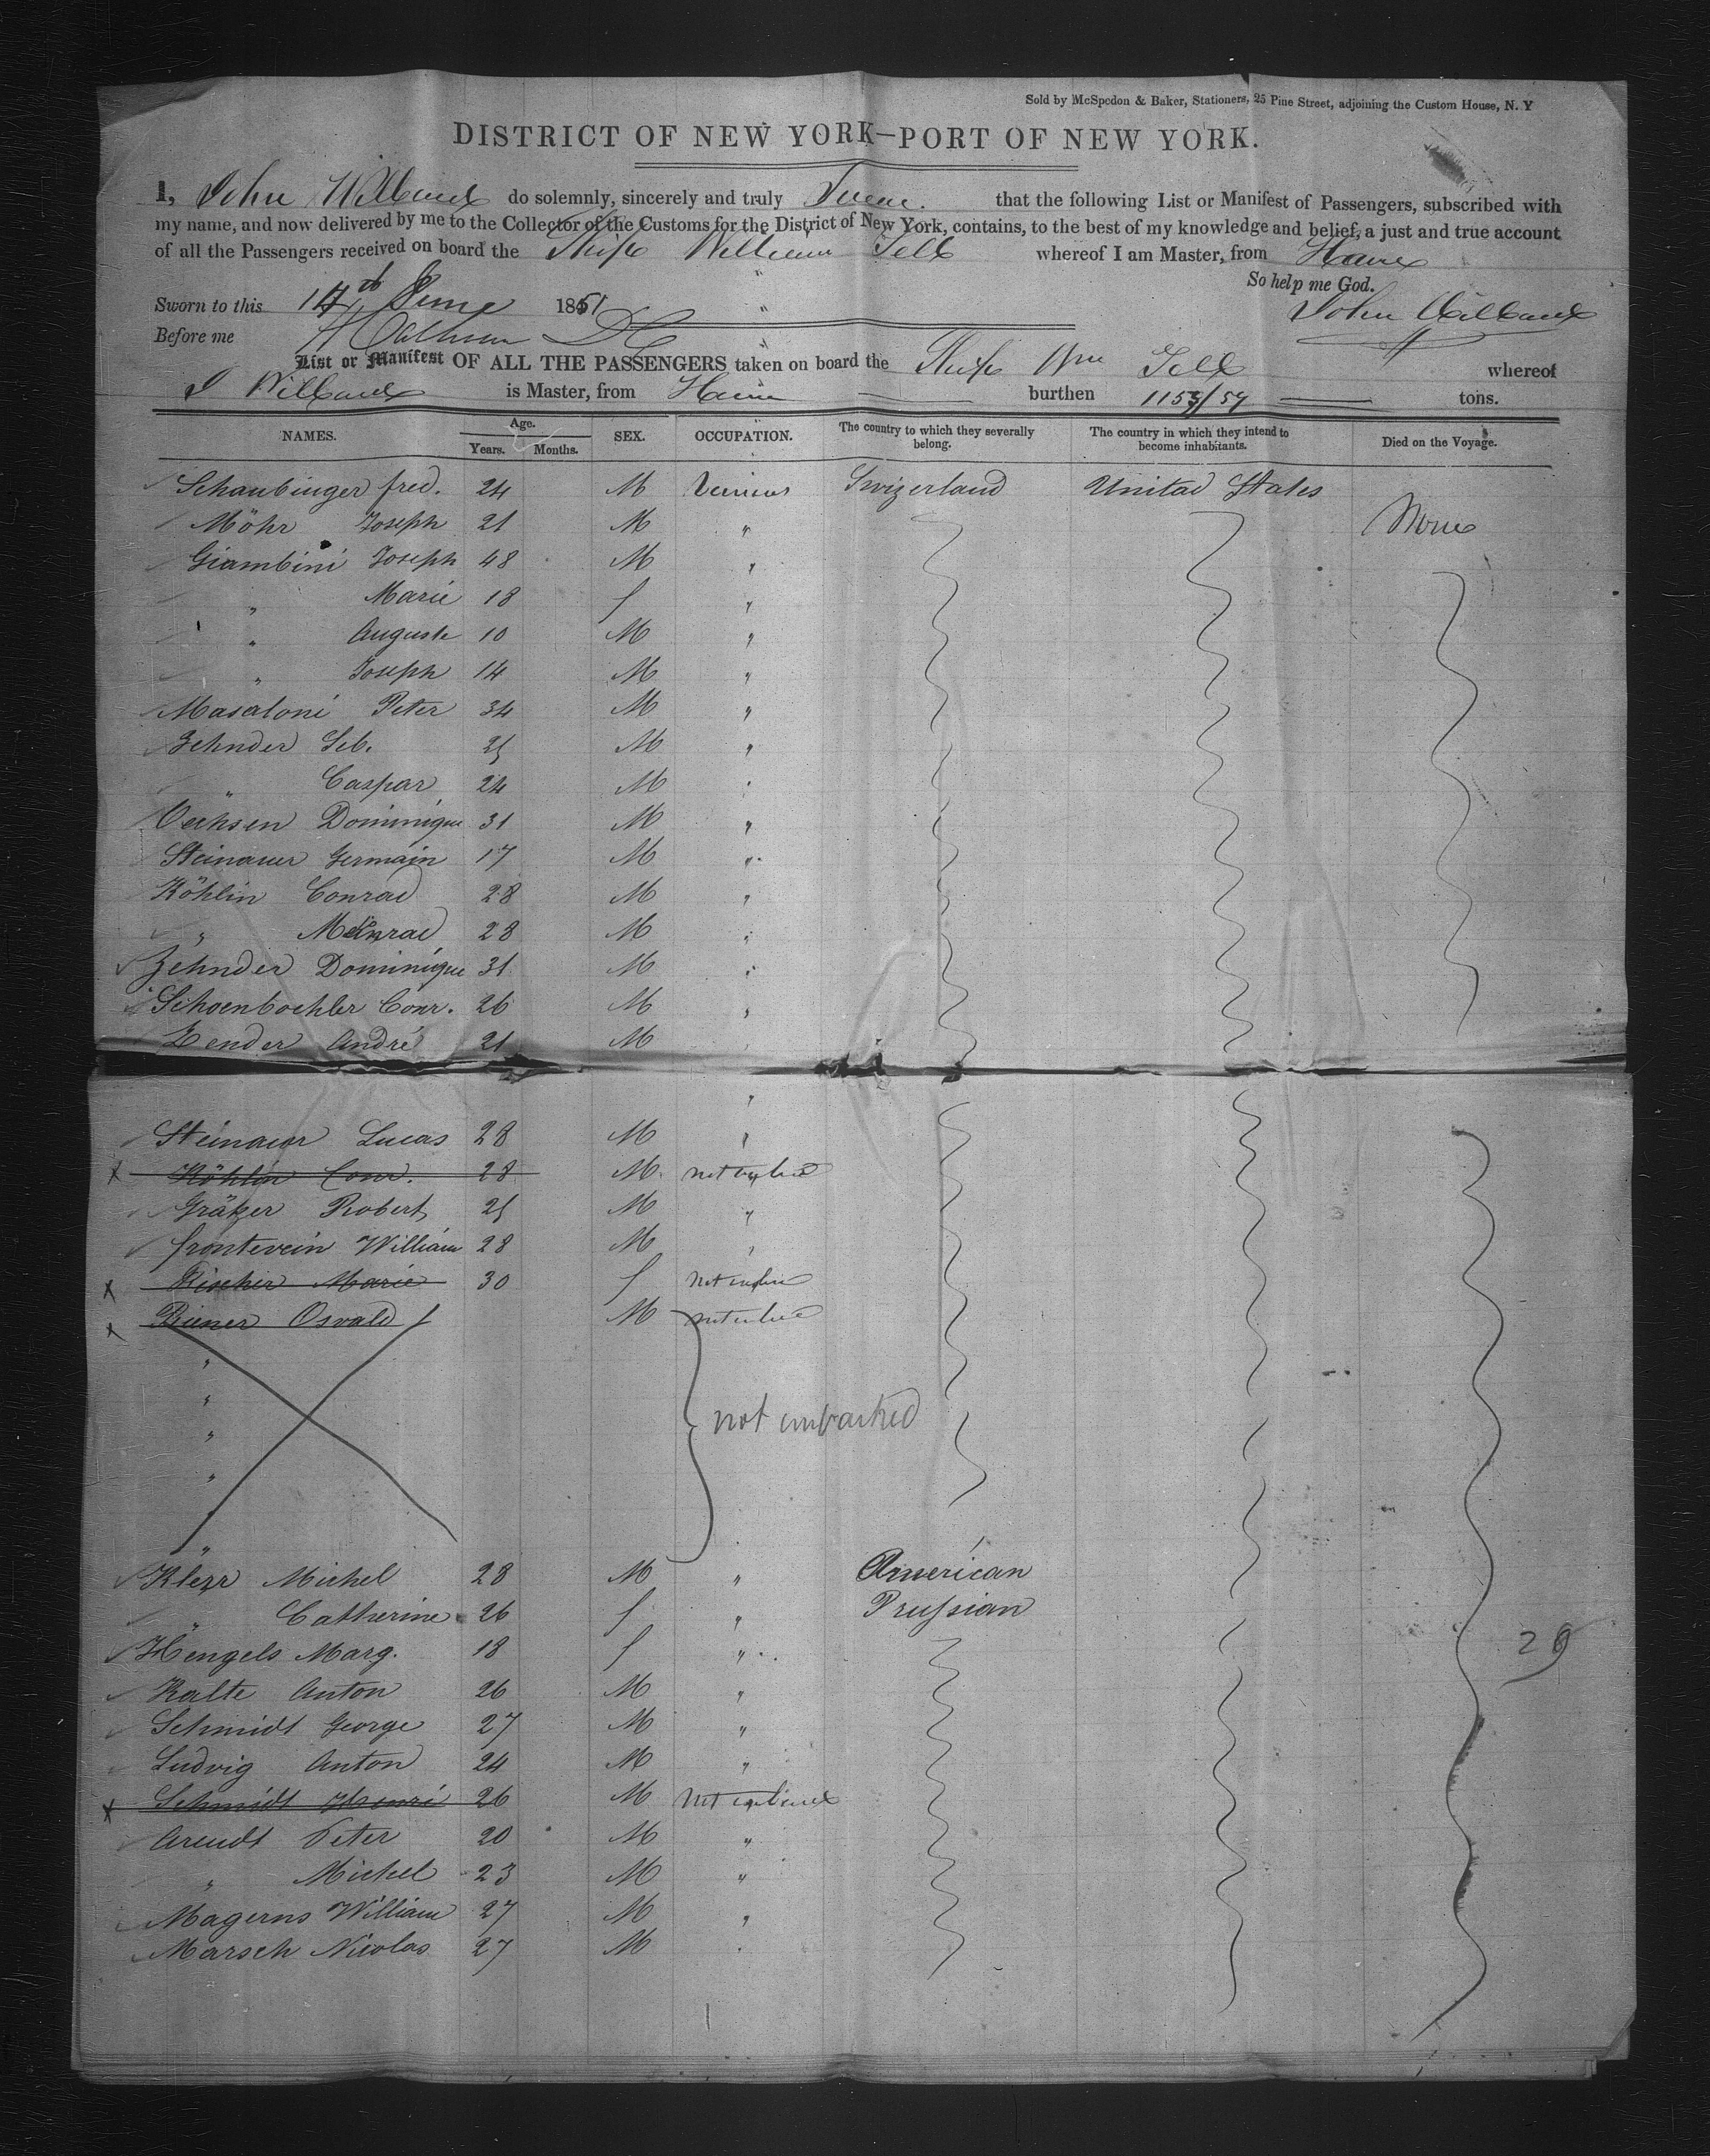 Sold by McSpedon & Baker, Stationers, 25 Pine Street, adjoining the Custom House, N. Y
DISTRICT OF NEW YORK—PORT OF NEW YORK.
I, John Willard do solemnly, sincerely and truly Swear. that the following List or Manifest of Passengers, subscribed with
my name, and now delivered by me to the Collector of the Customs for the District of New York, contains, to the best of my knowledge and belief, a just and true account
of all the Passengers received on board the Ship William Tell whereof I am Master, from Havre
So help me God.
Sworn to this 14th June 1851
John Willard
Before me
List or Manifest OF ALL THE PASSENGERS taken on board the Ship Wm Tell whereof
J Willard is Master, from Havre burthen 1153/54 tons.
NAMES. Age. Years. Months. SEX. OCCUPATION. The country to which they severally belong. The country in which they intend to become inhabitants. Died on the Voyage.
Schaubinger fred. 24 M Swizerland United States
Möhr Joseph 21 M " None
Giambini Joseph 48 M "
" Marie 18 f "
" Auguste 10 M "
" Joseph 14 M "
Masaloni Peter 34 M "
Zehnder Seb. 25 M "
" Caspar 24 M "
Oechsen Dominique 31 M "
Steinauer Germain 17 M "
Köhlin Conrad 28 M "
" Meinrad 28 M "
Zehnder Dominique 31 M "
Schoenbachler Conr. 26 M "
Zender André 21 M "
"
Steinauer Lucas 28 M "
Köhlin Conr. 28 M
Gräzer Robert 25 M "
frontevein William 28 M "
Fischer Marie 30 f
Riener Osvald M
"
"
" not embarked
"
"
Klezr Michel 28 M " American
" Catherine 26 f " Prussian
Hengels Marg. 18 f "
Kalte Anton 26 M "
Schmidt George 27 M "
Ludvig Anton 24 M "
Schmidt Henri 26 M
Arendt Peter 20 M "
" Michel 23 M "
Magerns William 27 M "
Marsch Nicolas 27 M "